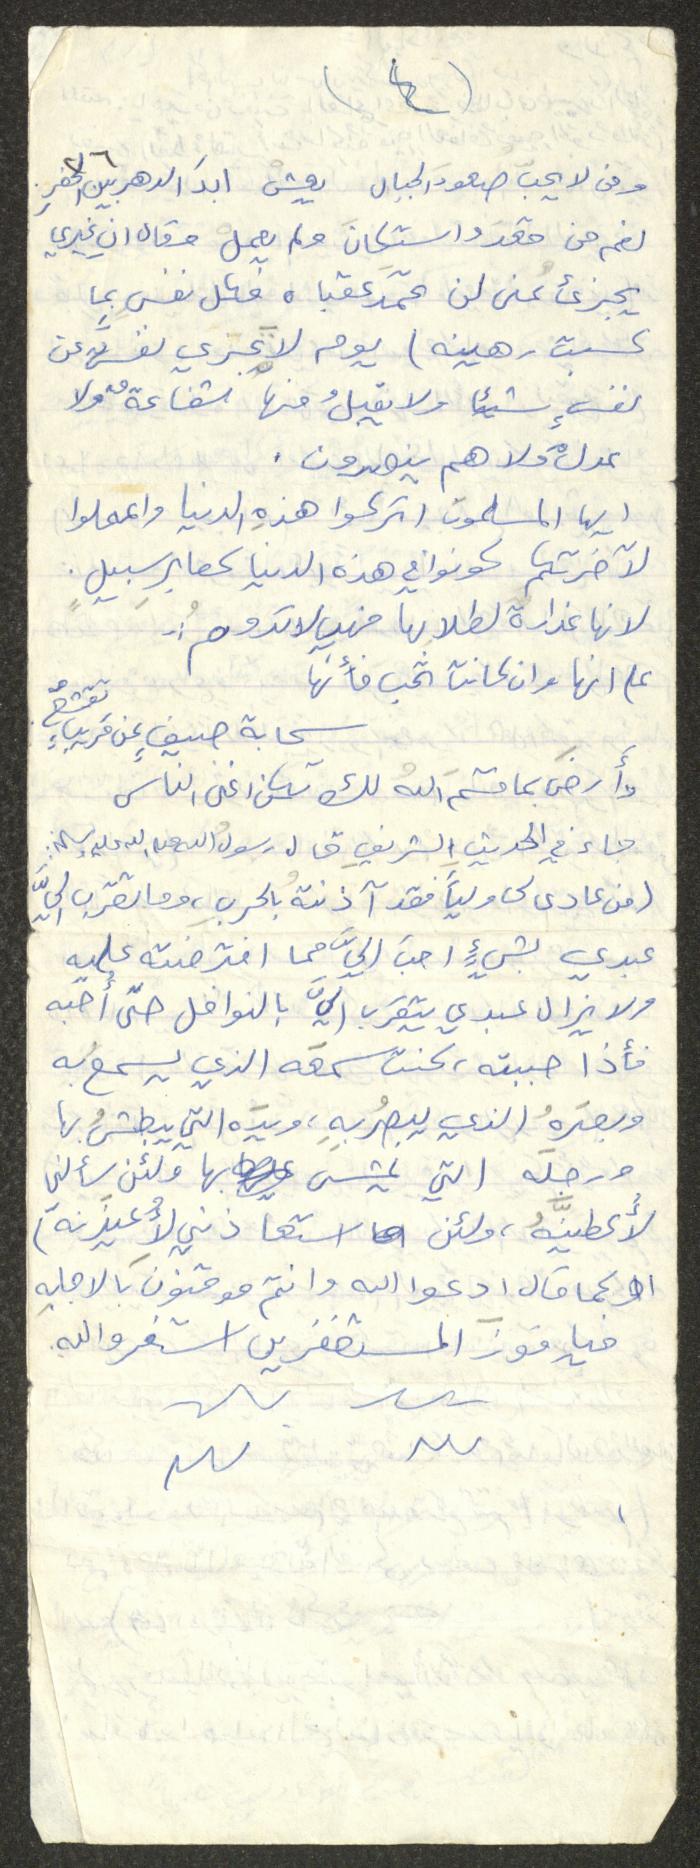 (٤)
ومن لا يحبّ صعود الجبال يعيش ابدَ الدهر بين الحفر
٢٦
نعم من قعد واستكان ولم يعمل وقال ان غيري
يجزئ عني لن تحمد عقباه فكل نفس بما
كسبت رهينه) يوم لا تجزي نفسٌ عن
نفسٍ شيئا ولا يقبلُ منها شفاعة ولا
عدلٌ ولا هم ينصرون .
ايها المسلمون اتركوا هذه الدنيا واعملوا
لآخرتكم كونوا في هذه الدنيا كعابر سبيل .
لانها غدارة لطلابها فهي لا تدوم :
على انها وان كانت تحب فأنها
سحابة صيفٍ عن قريبٍ تقشعُ
وأرضَ بما قسّمَ اللهُ لك تكن اغنى الناس
جاء في الحديث الشريف قال رسول الله صلى الله عليه وسلم:
(من عادى لي وليّاً فقد آذنتهُ بالحرب، وما تقرب اليَّ
عبدي بشيءٍ احبَ اليَّ مما افترضته عليه
ولا يزال عبدي يتقرب اليَّ بالنوافل حتّى أُحبّه
فأذا حببته، كنت سمعَه الذي يسمعُ به
وبصرَهُ الذي يبصرُ بهِ، ويدَه التي يبطشُ بها
ورجلَه التي يمشي بها ولئن سألني
لأعطينّهُ، ولئن استعاذني لأُعيذنه)
او كما قال ادعوا الله وانتم موقنون بالاجابه
فيا فوزَ المستغفرين استغفروا الله.